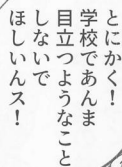 とにかく！
学校であんま
目立つようなこと
しないで
ほしいんス！